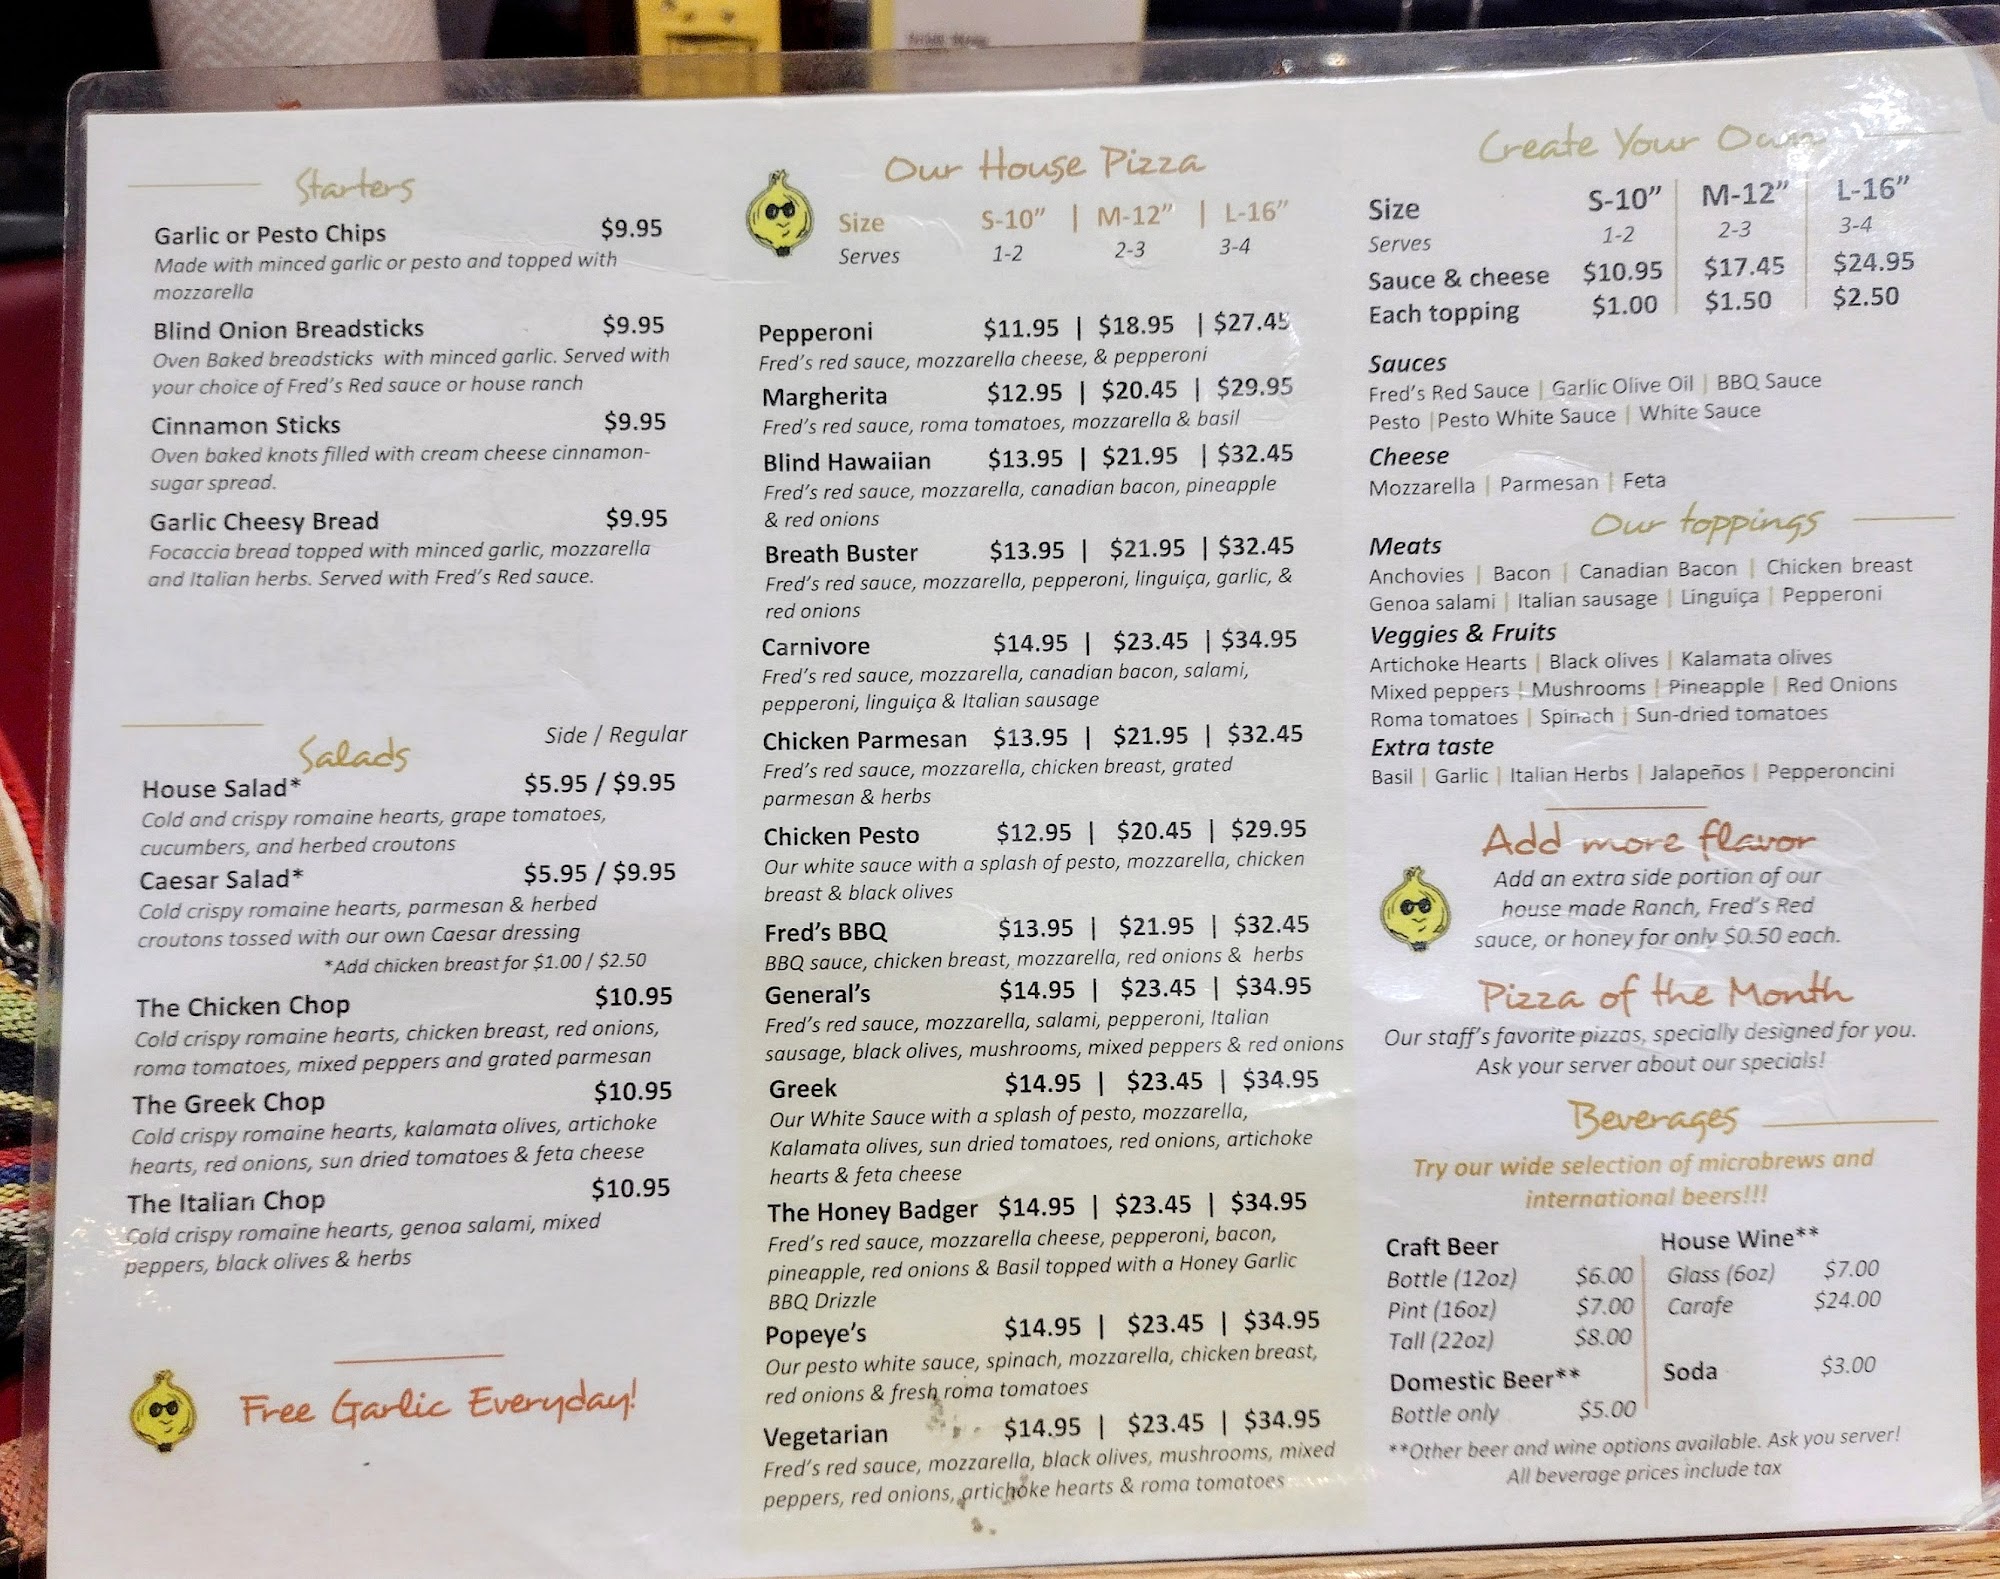 Starters
Garlic or Pesto Chips $9.95
Made with minced garlic or pesto and topped with
mozzarella
Blind Onion Breadsticks $9.95
Oven Baked breadsticks with minced garlic. Served with
your choice of Fred's Red sauce or house ranch
Cinnamon Sticks $9.95
Oven baked knots filled with cream cheese cinnamon-
sugar spread.
Garlic Cheesy Bread $9.95
Focaccia bread topped with minced garlic, mozzarella
and Italian herbs. Served with Fred's Red sauce.
Salads Side / Regular
House Salad* $5.95 / $9.95
Cold and crispy romaine hearts, grape tomatoes,
cucumbers, and herbed croutons
Caesar Salad* $5.95 / $9.95
Cold crispy romaine hearts, parmesan & herbed
croutons tossed with our own Caesar dressing
*Add chicken breast for $1.00 / $2.50
The Chicken Chop $10.95
Cold crispy romaine hearts, chicken breast, red onions,
roma tomatoes, mixed peppers and grated parmesan
The Greek Chop $10.95
Cold crispy romaine hearts, kalamata olives, artichoke
hearts, red onions, sun dried tomatoes & feta cheese
The Italian Chop $10.95
Cold crispy romaine hearts, genoa salami, mixed
peppers, black olives & herbs
Free Garlic Everyday!
Our House Pizza
Size S-10" | M-12" | L-16"
Serves 1-2 2-3 3-4
Pepperoni $11.95 | $18.95 | $27.45
Fred's red sauce, mozzarella cheese, & pepperoni
Margherita $12.95 | $20.45 | $29.95
Fred's red sauce, roma tomatoes, mozzarella & basil
Blind Hawaiian $13.95 | $21.95 | $32.45
Fred's red sauce, mozzarella, canadian bacon, pineapple
& red onions
Breath Buster $13.95 | $21.95 | $32.45
Fred's red sauce, mozzarella, pepperoni, linguiça, garlic, &
red onions
Carnivore $14.95 | $23.45 | $34.95
Fred's red sauce, mozzarella, canadian bacon, salami,
pepperoni, linguiça & Italian sausage
Chicken Parmesan $13.95 | $21.95 | $32.45
Fred's red sauce, mozzarella, chicken breast, grated
parmesan & herbs
Chicken Pesto $12.95 | $20.45 | $29.95
Our white sauce with a splash of pesto, mozzarella, chicken
breast & black olives
Fred's BBQ $13.95 | $21.95 | $32.45
BBQ sauce, chicken breast, mozzarella, red onions & herbs
General's $14.95 | $23.45 | $34.95
Fred's red sauce, mozzarella, salami, pepperoni, Italian
sausage, black olives, mushrooms, mixed peppers & red onions
Greek $14.95 | $23.45 | $34.95
Our White Sauce with a splash of pesto, mozzarella,
Kalamata olives, sun dried tomatoes, red onions, artichoke
hearts & feta cheese
The Honey Badger $14.95 | $23.45 | $34.95
Fred's red sauce, mozzarella cheese, pepperoni, bacon,
pineapple, red onions & Basil topped with a Honey Garlic
BBQ Drizzle
Popeye's $14.95 | $23.45 | $34.95
Our pesto white sauce, spinach, mozzarella, chicken breast,
red onions & fresh roma tomatoes
Vegetarian $14.95 | $23.45 | $34.95
Fred's red sauce, mozzarella, black olives, mushrooms, mixed
peppers, red onions, artichoke hearts & roma tomatoes
Create Your Own
Size S-10" M-12" L-16"
Serves 1-2 2-3 3-4
Sauce & cheese $10.95 $17.45 $24.95
Each topping $1.00 $1.50 $2.50
Sauces
Fred's Red Sauce | Garlic Olive Oil | BBQ Sauce
Pesto | Pesto White Sauce | White Sauce
Cheese
Mozzarella | Parmesan | Feta
Our toppings
Meats
Anchovies | Bacon | Canadian Bacon | Chicken breast
Genoa salami | Italian sausage | Linguiça | Pepperoni
Veggies & Fruits
Artichoke Hearts | Black olives | Kalamata olives
Mixed peppers | Mushrooms | Pineapple | Red Onions
Roma tomatoes | Spinach | Sun-dried tomatoes
Extra taste
Basil | Garlic | Italian Herbs | Jalapeños | Pepperoncini
Add more flavor
Add an extra side portion of our
house made Ranch, Fred's Red
sauce, or honey for only $0.50 each.
Pizza of the Month
Our staff's favorite pizzas, specially designed for you.
Ask your server about our specials!
Beverages
Try our wide selection of microbrews and
international beers!!!
Craft Beer
Bottle (12oz) $6.00
Pint (16oz) $7.00
Tall (22oz) $8.00
Domestic Beer**
Bottle only $5.00
House Wine**
Glass (6oz) $7.00
Carafe $24.00
Soda $3.00
**Other beer and wine options available. Ask you server!
All beverage prices include tax